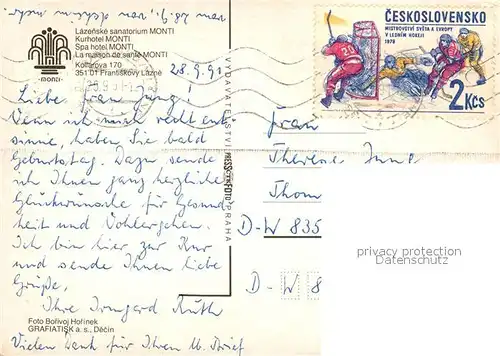 vom 28.9.
Lázeňské sanatorium MONTI
Kurhotel MONTI
Spa hotel MONTI
La maison de santé MONTI
Kollárova 170
351 01 Františkovy Lázně
MONTI
28.9.91
Liebe Frau Jung!
Wenn ich mich recht ent
sinne, haben Sie bald
Geburtstag. Dazu sende
ich Ihnen ganz herzliche
Glückwünsche für Gesund
heit und Wohlergehen.
Ich bin hier zur Kur
und sende Ihnen liebe
Grüße,
Ihre Irmgard Ruth
Foto Bořivoj Hořínek
GRAFIATISK a. s., Děčín
Vielen Dank für Ihren lb. Brief
VYDAVATELSTVÍ PRESSFOTO PRAHA
ČESKOSLOVENSKO
MISTROVSTVÍ SVĚTA A EVROPY
V LEDNÍM HOKEJI
1978
20
2 Kčs
Frau
Therese
Thom
D-W 835
privacy protection
watermark
D-W 8